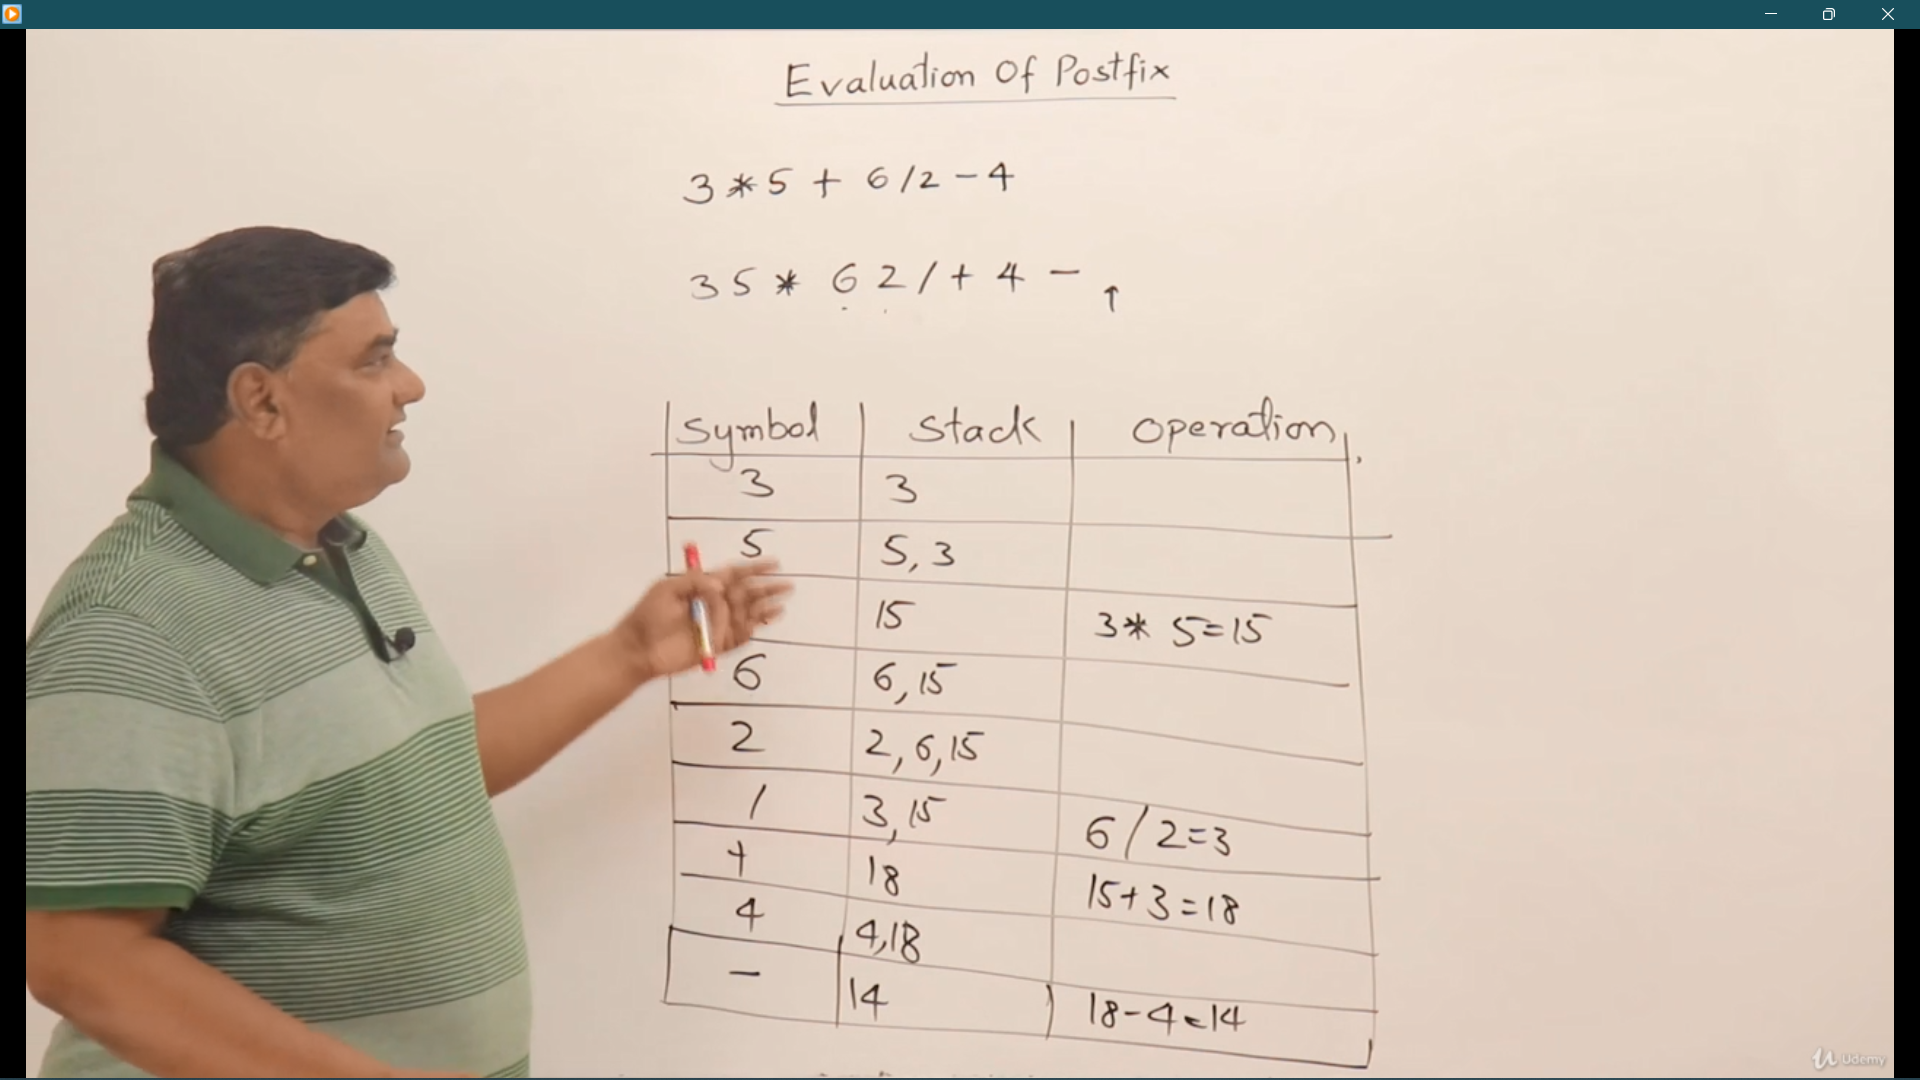 Evaluation Of Postfix
3 * 5 + 6 / 2 - 4
3 5 * 6 2 / + 4 - ↑
Symbol Stack Operation
3 3
5 5, 3
15 3 * 5 = 15
6 6, 15
2 2, 6, 15
/ 3, 15 6 / 2 = 3
+ 18 15 + 3 = 18
4 4, 18
- 14 18 - 4 = 14
Udemy